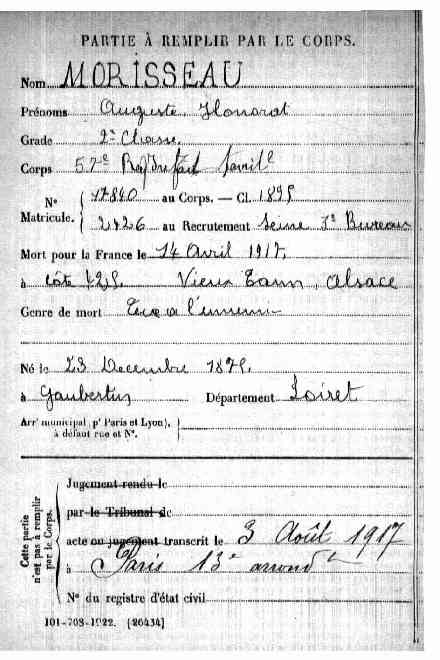 PARTIE À REMPLIR PAR LE CORPS.
Nom MORISSEAU
Prénoms Auguste, Honorat
Grade 2e Classe
Corps 57e
N° Matricule. 17840 au Corps. — Cl. 1895
2426 au Recrutement Seine 3e Bureau
Mort pour la France le 14 Avril 1917.
à Côte 425. Vieux Tann, Alsace
Genre de mort Tué à l'ennemi
Né le 23 Decembre 1875.
à Gaubertin Département Loiret
Arrt municipal (pr Paris et Lyon),
à défaut rue et N°.
Cette partie n'est pas à remplir par le Corps.
Jugement rendu le
par le Tribunal de
acte ou jugement transcrit le 3 Août 1917
à Paris 13e arrondt
N° du registre d'état civil
101-708-1922. [26434]